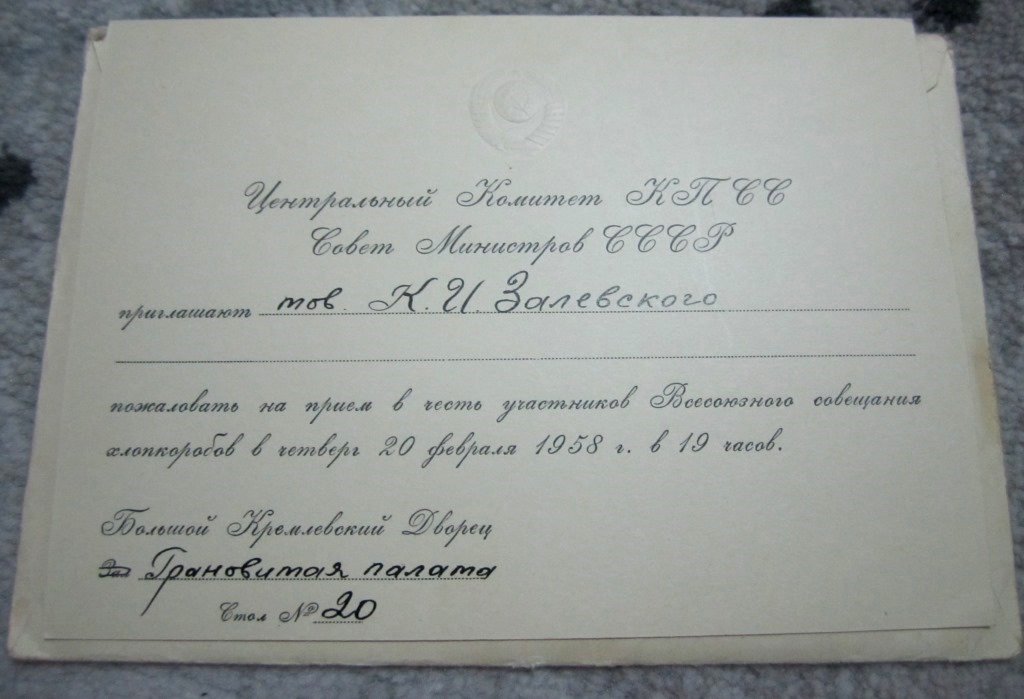 Центральный Комитет КПСС
Совет Министров СССР
приглашают тов. К. И. Залевского
пожаловать на прием в честь участников Всесоюзного совещания
хлопкоробов в четверг 20 февраля 1958 г. в 19 часов.
Большой Кремлевский Дворец
Зал Грановитая палата
Стол № 20